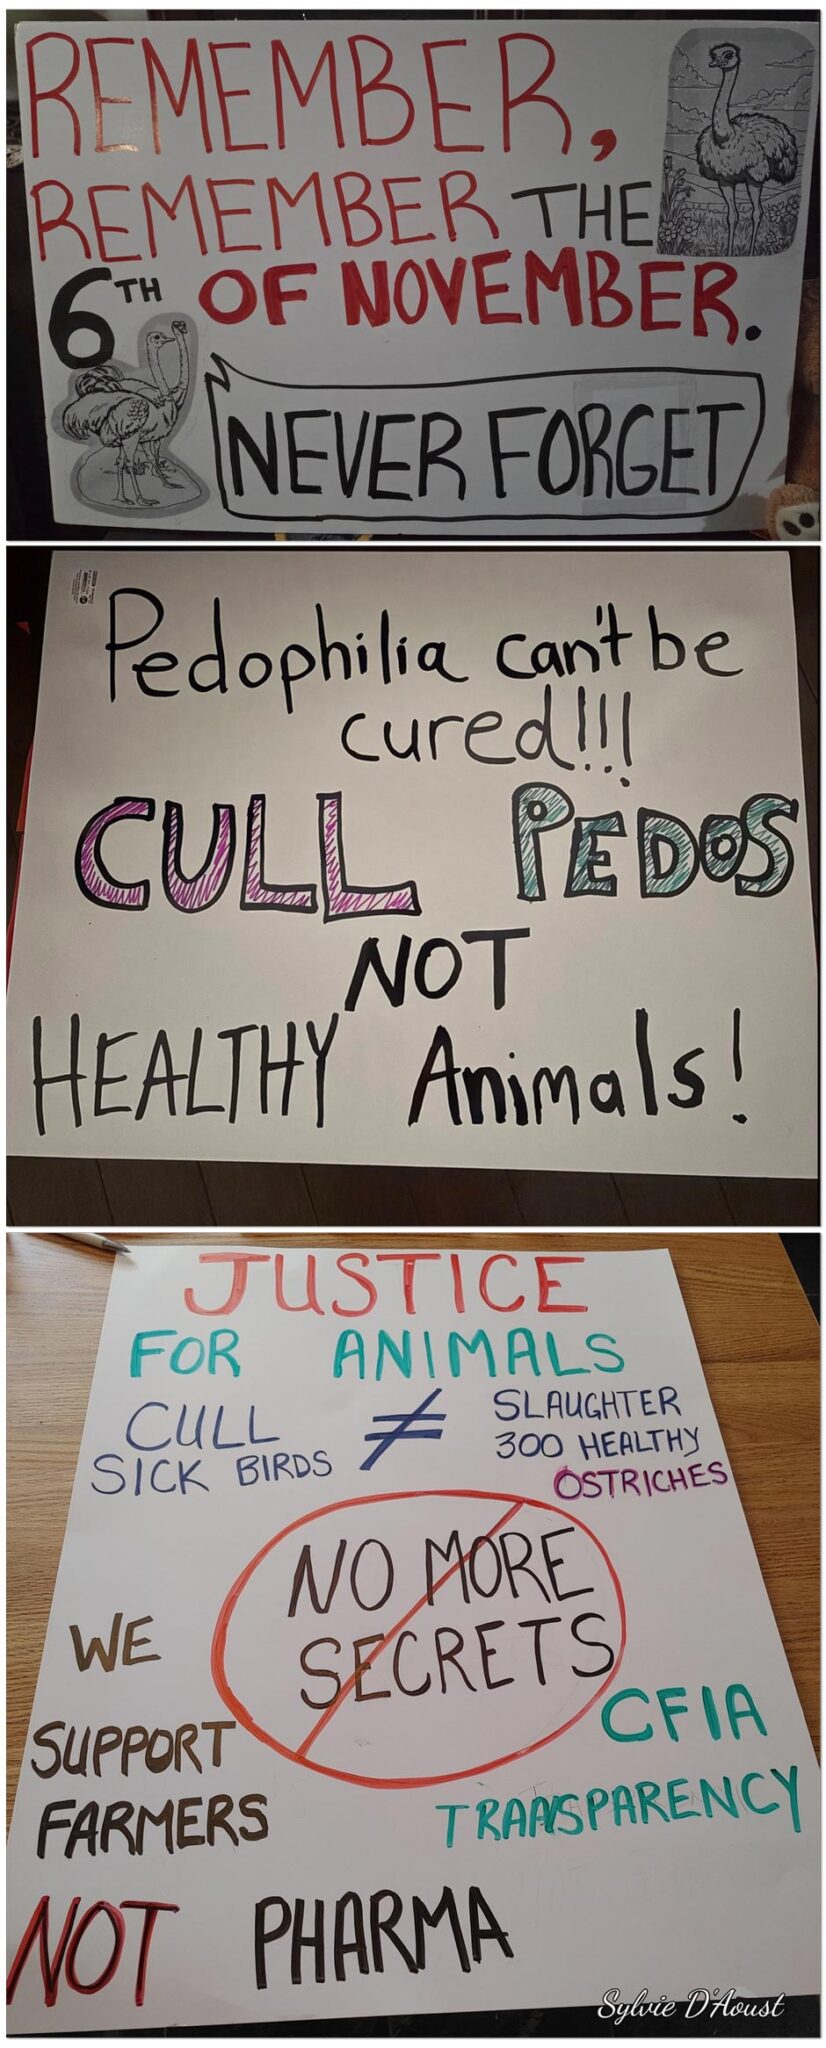 REMEMBER,
REMEMBER THE
6TH OF NOVEMBER.
NEVER FORGET
Pedophilia can't be
cured!!!
CULL PEDOS
NOT
HEALTHY Animals!
JUSTICE
FOR ANIMALS
CULL ≠ SLAUGHTER
SICK BIRDS 300 HEALTHY
OSTRICHES
NO MORE
SECRETS
WE
SUPPORT
FARMERS
CFIA
TRANSPARENCY
NOT PHARMA
Sylvie D'Aoust